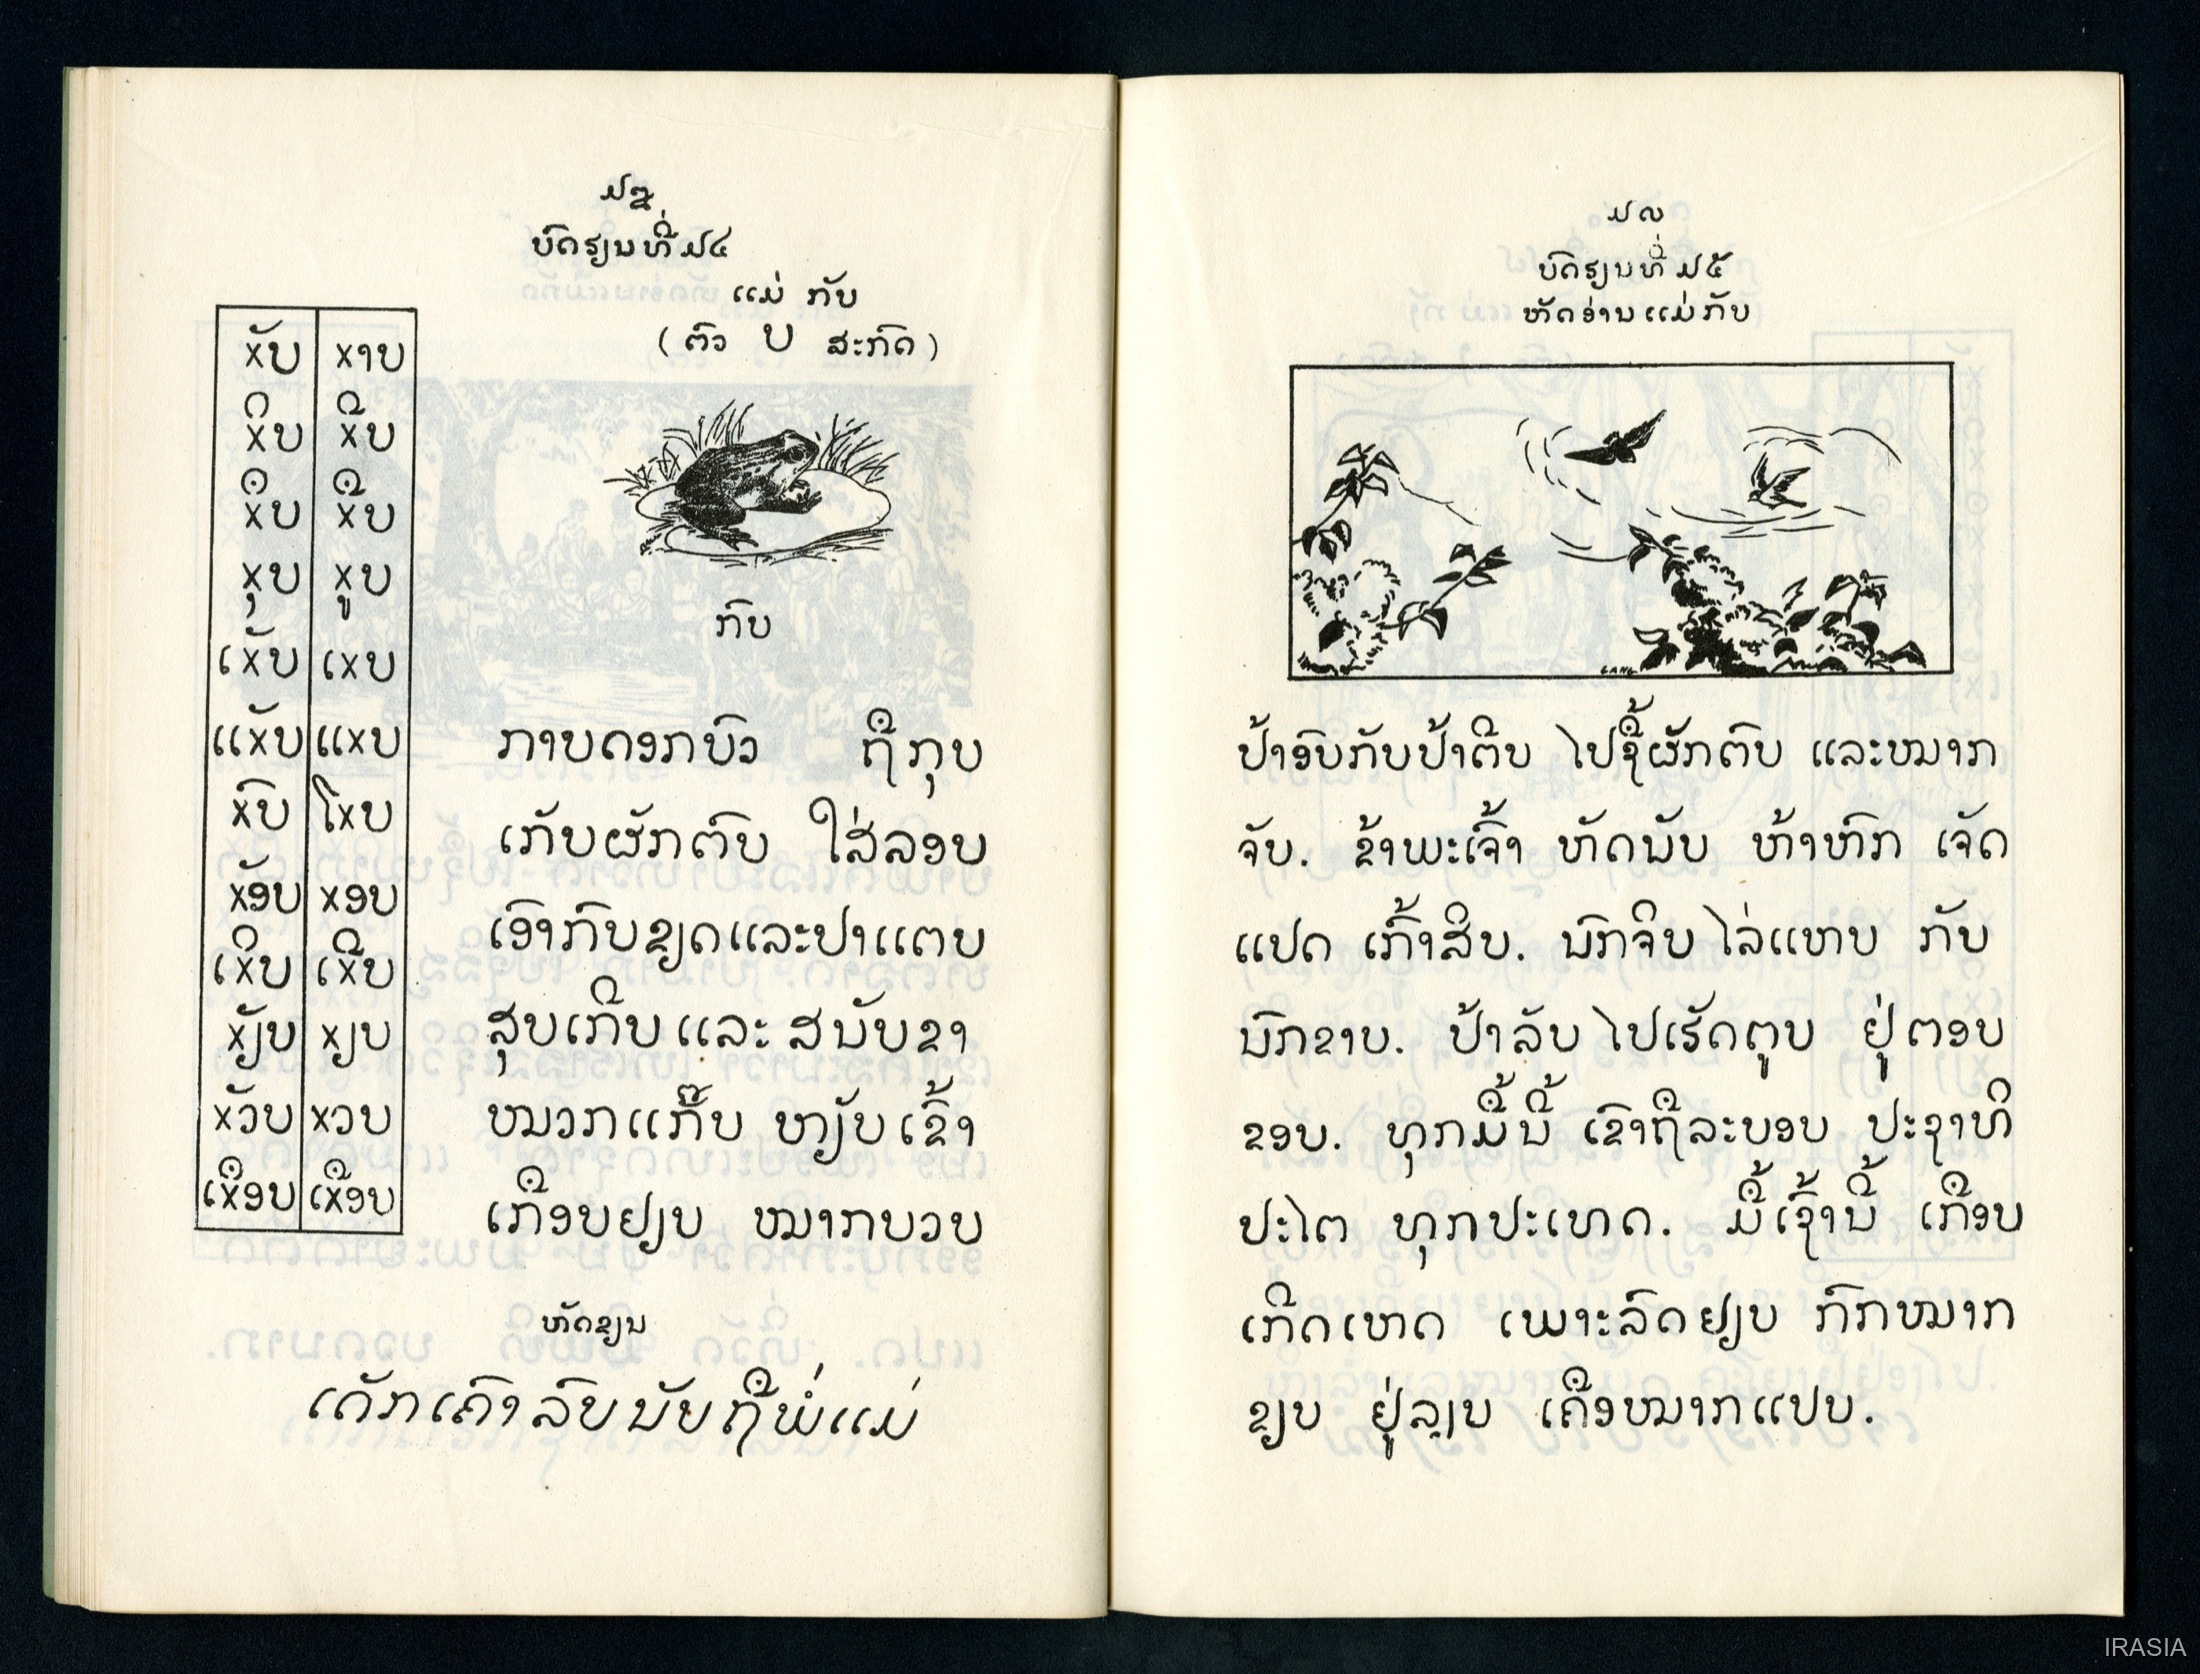 ໒໖
ບົດຮຽນທີ່ ໒໔
ແມ່ ກັບ
(ຕົວ ບ ສະກົດ)
xັບ xາບ
xິບ xີບ
xຶບ xືບ
xຸບ xູບ
ເxັບ ເxບ
ແxັບ ແxບ
xົບ ໂxບ
xັອບ xອບ
ເxິບ ເxີບ
xັຽບ xຽບ
xັວບ xວບ
ເxຶອບ ເxືອບ
ກົບ
ກາບດອກບົວ ຖືກຸບ
ເກັບຜັກຕົບ ໃສ່ລອບ
ເອົາກົບຂຽດແລະປາແຕບ
ສຸບເກີບແລະ ສນັບຂາ
ໝວກແກັ໊ບ ຫຽັບ ເຂົ້າ
ເກືອບຢຽບ ໝາກບວບ
ຫັດຂຽນ
ເດັກເຄົາລົບນັບຖືພໍ່ແມ່
໒໗
ບົດຮຽນທີ່ ໒໕
ຫັດອ່ານແມ່ກັບ
ປ້າອົບກັບປ້າຕີບ ໄປຊື້ຜັກຕົບ ແລະໝາກ
ຈັບ. ຂ້າພະເຈົ້າ ຫັດນັບ ຫ້າຫົກ ເຈັດ
ແປດ ເກົ້າສິບ. ນົກຈິບ ໄລ່ແຫບ ກັບ
ນົກຂາບ. ປ້າລັບ ໄປເຮັດຕູບ ຢູ່ຕອບ
ຂອບ. ທຸກມື້ນີ້ ເຂົາຖືລະບອບ ປະຊາທິ
ປະໄຕ ທຸກປະເທດ. ມື້ເຊົ້ານີ້ ເກືອບ
ເກີດເຫດ ເພາະລົດຢຽບ ກົກໝາກ
ຂຽບ ຢູ່ລຽບ ເຄືອໝາກແປບ.
IRASIA